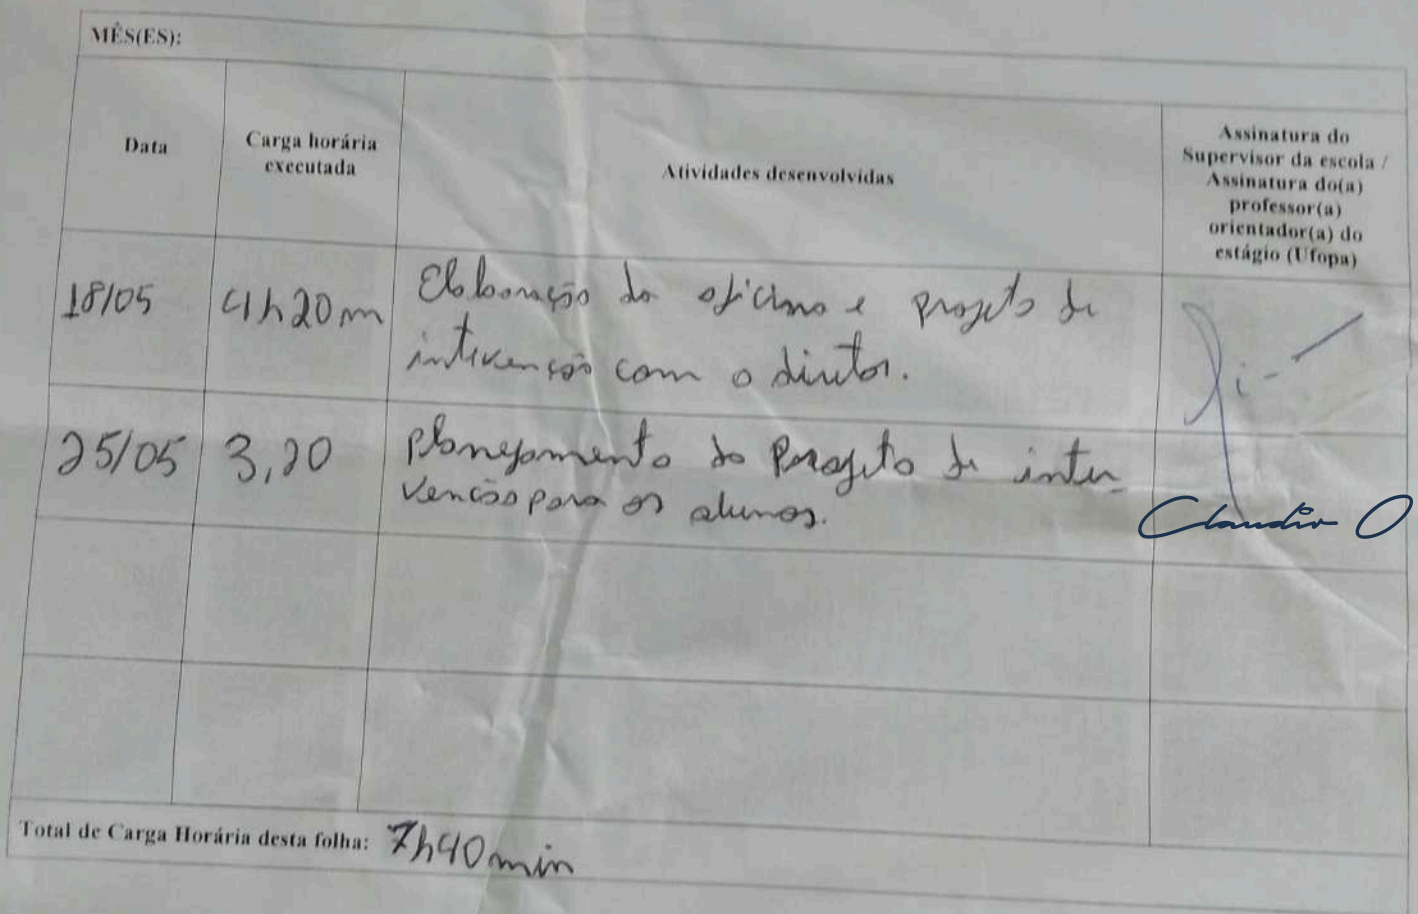 MÊS(ES):
Data
Carga horária
executada
Atividades desenvolvidas
Assinatura do
Supervisor da escola /
Assinatura do(a)
professor(a)
orientador(a) do
estágio (Ufopa)
18/05
4h20m
Elaboração da oficina e projeto de
intervenção com o diretor.
25/05
3,20
Planejamento do Projeto de inter-
venção para os alunos.
Claudio O
Total de Carga Horária desta folha: 7h40min